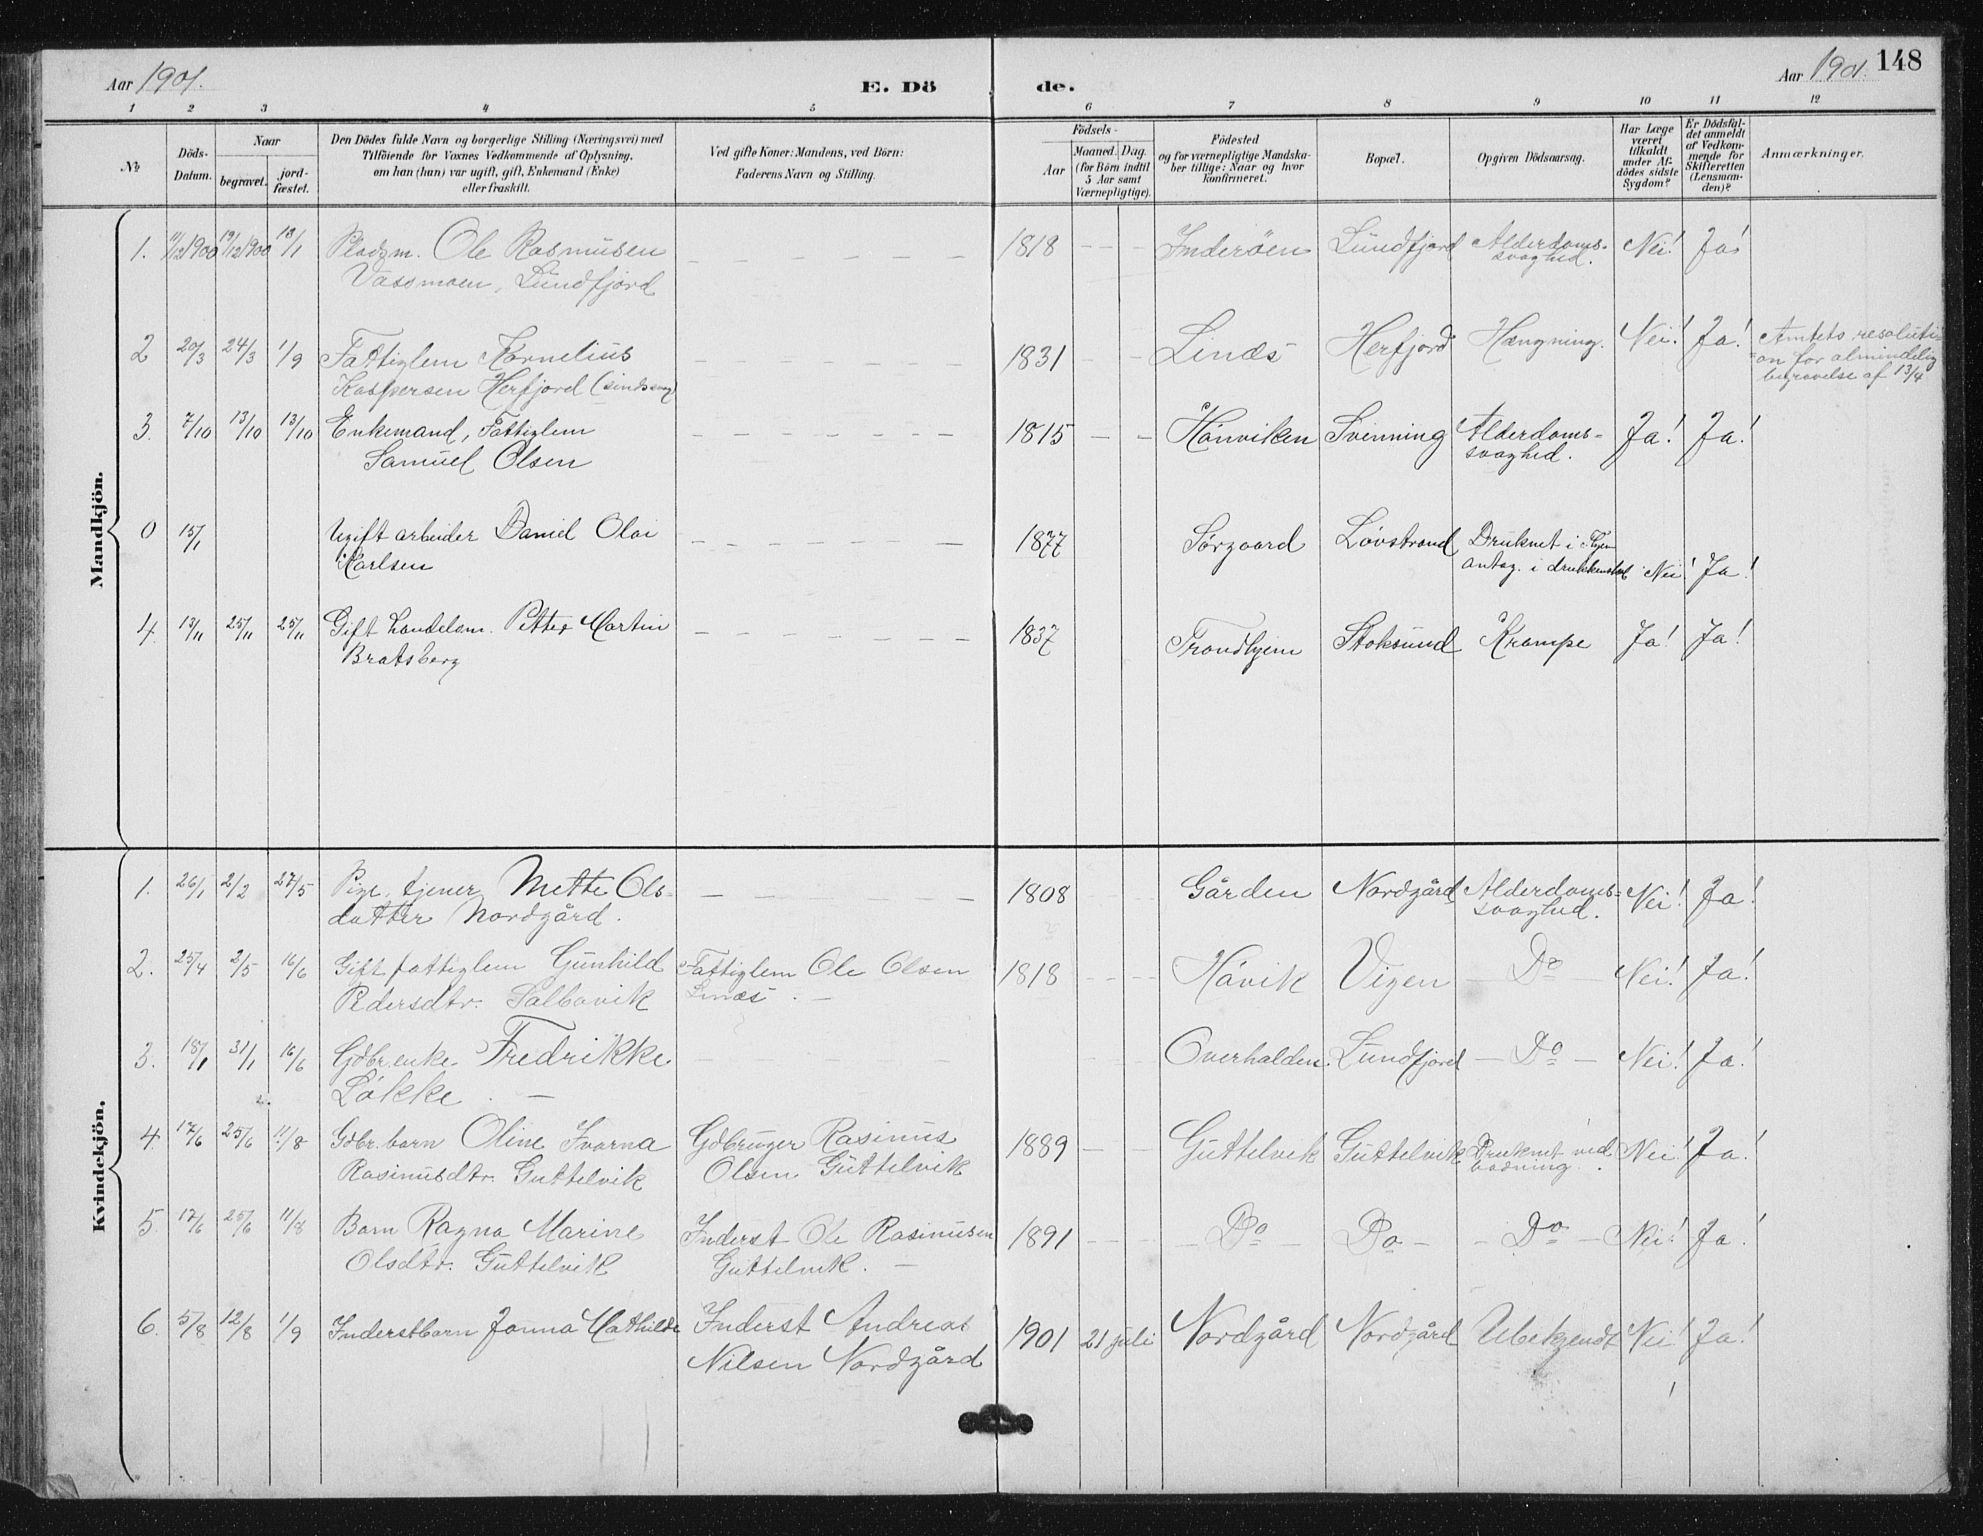 Aar 1901. E. Dö
de. Aar 1901. 148
1 2 3 4 5 6 7 8 9 10 11 12
№
Döds-
Datum.
Naar
begravet.
jord-
fæstet.
Den Dödes fulde Navn og borgerlige Stilling (Næringsvei) med
Tilföiende for Voxnes Vedkommende af Oplysning,
om han (hun) var ugift, gift, Enkemand (Enke)
eller fraskilt.
Ved gifte Koner: Mandens, ved Börn:
Faderens Navn og Stilling.
Födsels-
Aar
Maaned. Dag.
(for Börn indtil
5 Aar samt
Værnepligtige).
Födested
og for værnepligtige Mandska-
ber tillige: Naar og hvor
konfirmeret.
Bopæl.
Opgiven Dödsaarsag.
Har Læge
været
tilkaldt
under Af-
dödes sidste
Sygdom?
Er Dödsfal-
det anmeldt
af Vedkom-
mende for
Skifteretten
(Lensman-
den)?
Anmærkninger.
Mandkjön.
1. 11/12 1900 19/12 1900 18/1 Pladsm. Ole Rasmusen 1818 Inderöen Lundfjord Alderdoms- Nei! Ja!
Vassmoen, Lundfjord svaghed.
2 20/3 24/3 1/9 Fattiglem Kornelius 1831 Linæs Herfjord Hængning. Nei! Ja! Amtets resoluti-
Kaspersen Herfjord (sindssvag) on for almindelig
begravelse af 13/4
3. 7/10 13/10 13/10 Enkemand, Fattiglem 1815 Hönviken Svenning Alderdoms- Ja! Ja!
Samuel Olsen svaghed.
0 15/1 Ugift arbeider Daniel Olai 1877 Sörgaard Lövstrand Druknet i
Karlsen antag. i Nei! Ja!
4. 13/11 25/11 25/11 Gift handelsm. Petter Martin 1837 Trondhjem Stoksund Krampe Ja! Ja!
Bratsberg
Kvindekjön.
1. 26/1 2/2 27/5 Pige, tjener Mette Ols- 1808 Gården Nordgård Alderdoms- Nei! Ja!
datter Nordgård. svaghed.
2. 25/4 2/5 16/6 Gift fattiglem Gunhild Fattiglem Ole Olsen 1818 Håvik Vigen Do Nei! Ja!
Pedersdtr. Salbovik Linæs.
3. 18/1 31/1 16/6 Gdbr.enke Fredrikke Overhalden. Lundfjord Do Nei! Ja!
Lökke
4. 17/6 25/6 11/8 Gdbr.barn Oline Ivarna Gdbruger Rasmus 1889 Guttelvik Guttelvik Druknet ved Nei! Ja!
Rasmusdtr. Guttelvik Olsen Guttelvik badning.
5. 17/6 25/6 11/8 Barn Ragna Marine Inderst Ole Rasmusen 1891 Do Do Do Nei! Ja!
Olsdtr. Guttelvik Guttelvik.
6. 5/8 12/8 1/9 Inderstbarn Janna Mathilde Inderst Andreas 1901 21 juli Nordgård Nordgård Ubekjendt Nei! Ja!
Nilsen Nordgård